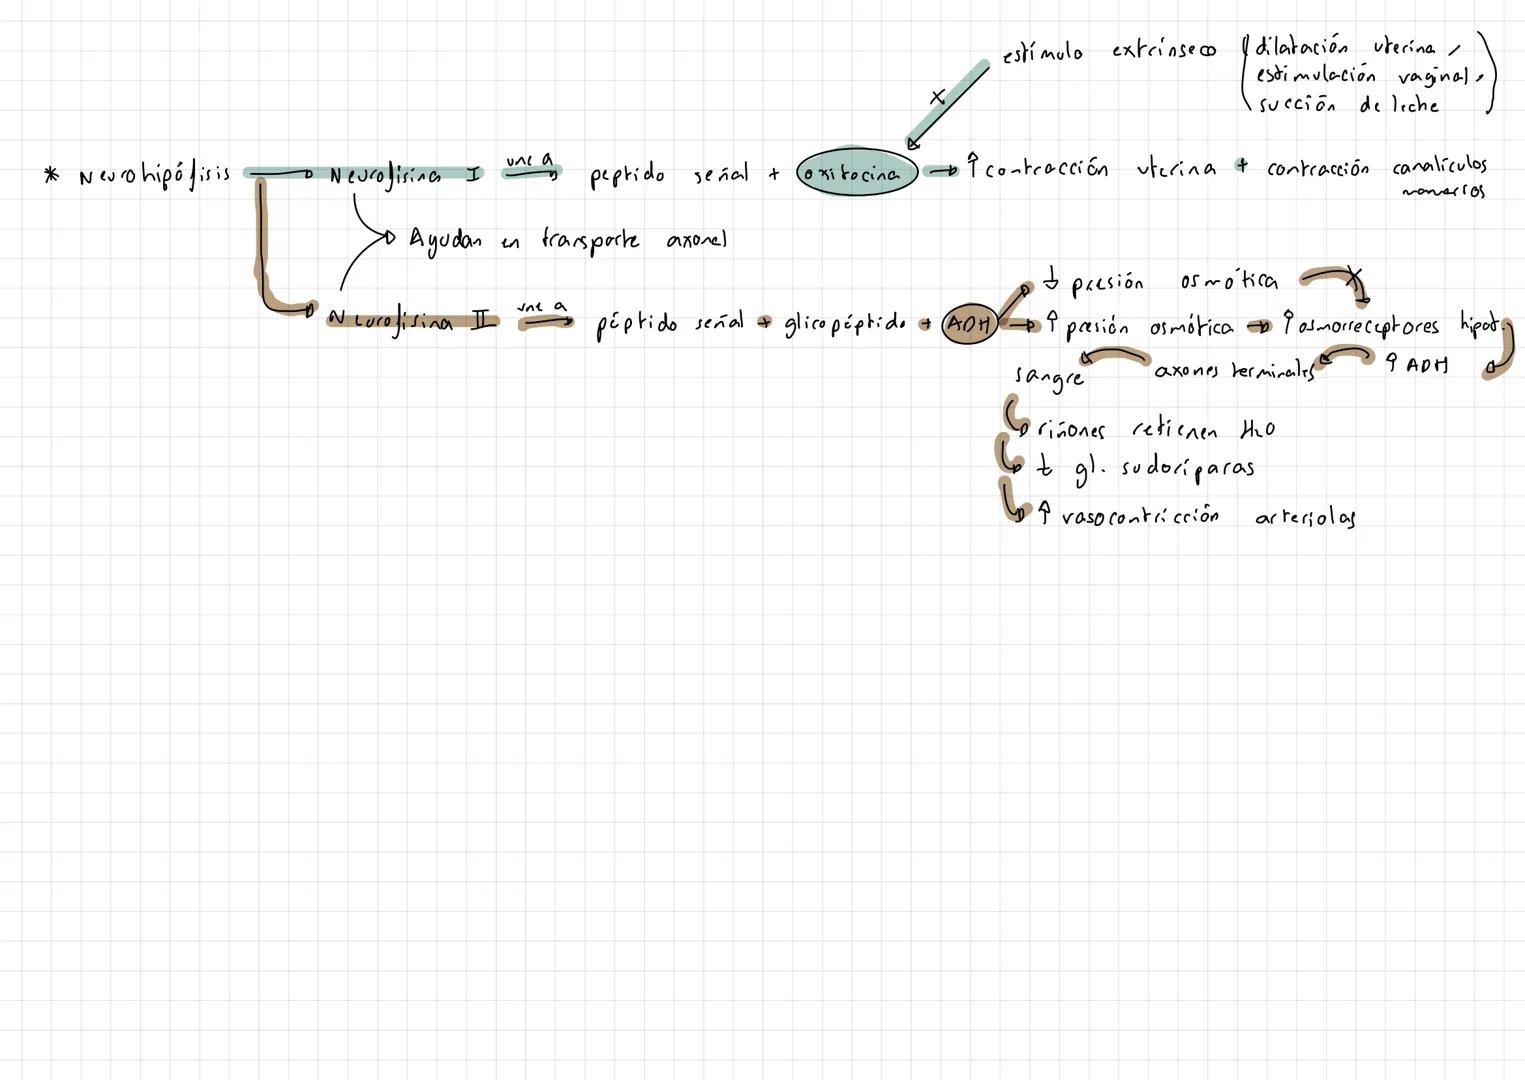 estímulo extrínseco (dilatación uterina,
estimulación vaginal,
succión de leche)
* Neurohipófisis → Neurofisina I une a → peptido señal + oxitocina → ↑ contracción uterina + contracción canalículos
mamarios
Ayudan en transporte axonal
↓ presión osmótica
Neurofisina II une a → péptido señal + glicopéptido + ADH → ↑ presión osmótica → ↑ osmorreceptores hipot.
sangre ← axones terminales ← ↑ ADH
riñones retienen H₂O
↓ gl. sudoríparas
↑ vasocontricción arteriolas